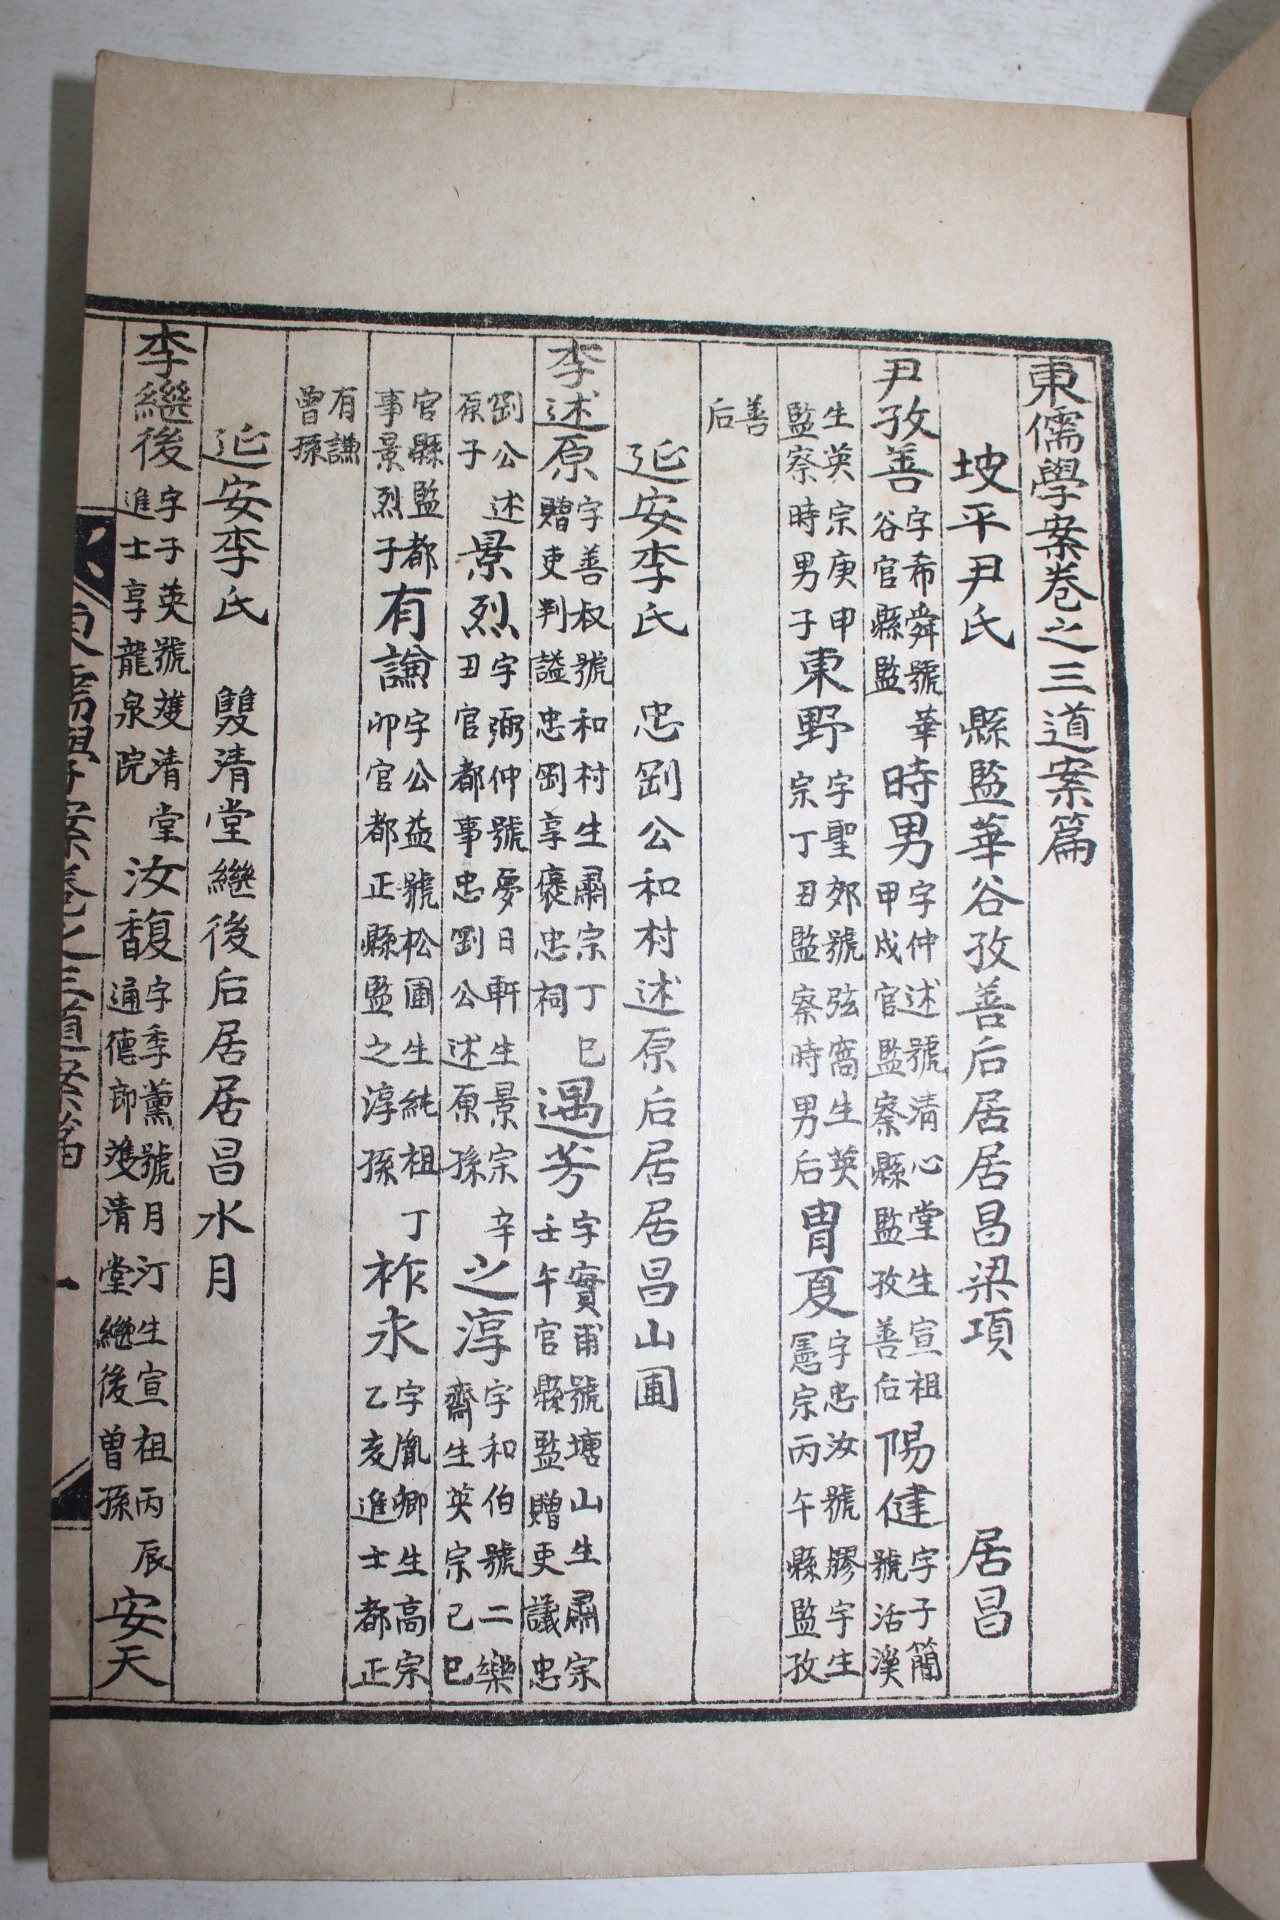 東儒學案卷之三道案篇
坡平尹氏 縣監華谷孜善后居居昌梁項 居昌
尹孜善 字希舜號華谷官縣監 時男 字仲述號清心堂生宣祖甲戍官監察縣監孜善后 陽健 字子簡號活溪
生英宗庚申監察時男子 東野 字聖郊號弦窩生英宗丁丑監察時男后 胄夏 字忠汝號膠宇生憲宗丙午縣監孜
善后
延安李氏 忠剛公和村述原后居居昌山圃
李述原 字善叔號和村生肅宗丁巳贈吏判謚忠剛享褒忠祠 遇芳 字實甫號塘山生肅宗壬午官縣監贈吏議忠
剛公述原子 景烈 字弼仲號夢日軒生景宗辛丑官都事忠剛公述原孫 之淳 字和伯號二樂齋生英宗己巳
官縣監都事景烈子 有謙 字公益號松圃生純祖丁卯官都正縣監之淳孫 祚永 字胤卿生高宗乙亥進士都正
有謙曾孫
延安李氏 雙清堂繼後后居居昌水月
李繼後 字子英號雙清堂進士享龍泉院 汝馥 字季薰號月汀生宣祖丙辰通德郎雙清堂繼後曾孫 安天
東儒學案卷之三道案篇 一